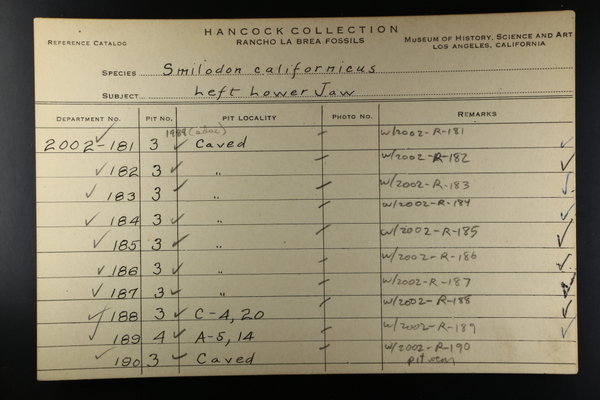 HANCOCK COLLECTION
REFERENCE CATALOG RANCHO LA BREA FOSSILS MUSEUM OF HISTORY, SCIENCE AND ART
LOS ANGELES, CALIFORNIA
SPECIES Smilodon californicus
SUBJECT Left Lower Jaw
DEPARTMENT NO. PIT NO. PIT LOCALITY PHOTO NO. REMARKS
2002-181 3 Caved w/2002-R-181
182 3 " w/2002-R-182
183 3 " w/2002-R-183
184 3 " w/2002-R-184
185 3 " w/2002-R-185
186 3 " w/2002-R-186
187 3 " w/2002-R-187
188 3 C-4, 20 w/2002-R-188
189 4 A-5, 14 w/2002-R-189
190 3 Caved w/2002-R-190
pit